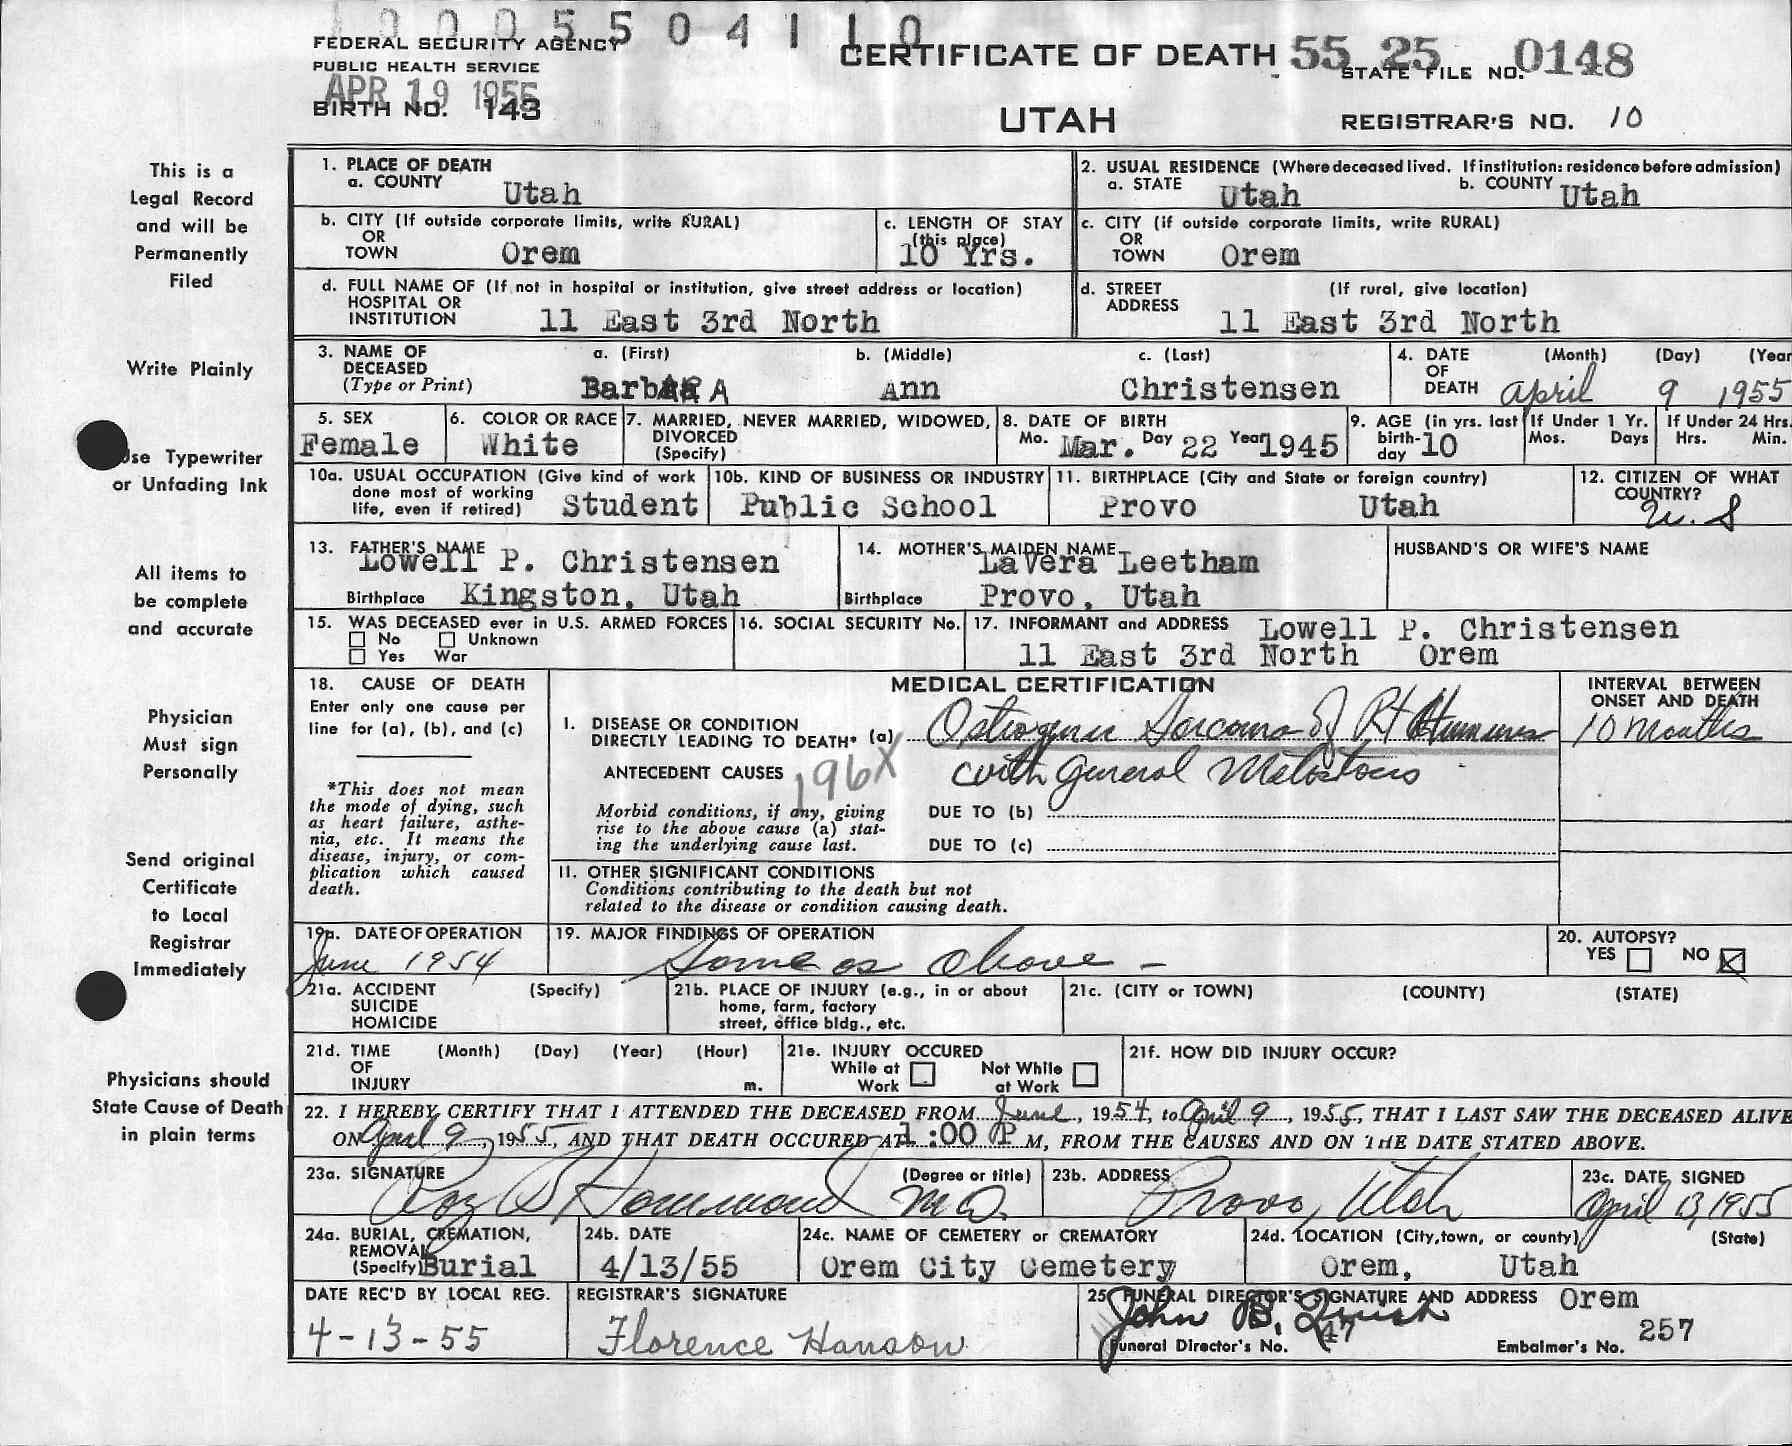 10005504110
FEDERAL SECURITY AGENCY
PUBLIC HEALTH SERVICE
APR 19 1955
BIRTH NO. 143
CERTIFICATE OF DEATH
UTAH
55 25 0148
STATE FILE NO.
REGISTRAR'S NO. 10
This is a
Legal Record
and will be
Permanently
Filed
Write Plainly
Use Typewriter
or Unfading Ink
All items to
be complete
and accurate
Physician
Must sign
Personally
Send original
Certificate
to Local
Registrar
Immediately
Physicians should
State Cause of Death
in plain terms
1. PLACE OF DEATH
a. COUNTY Utah
2. USUAL RESIDENCE (Where deceased lived. If institution: residence before admission)
a. STATE Utah b. COUNTY Utah
b. CITY (If outside corporate limits, write RURAL)
OR
TOWN Orem
c. LENGTH OF STAY
(this place)
10 Yrs.
c. CITY (if outside corporate limits, write RURAL)
OR
TOWN Orem
d. FULL NAME OF (If not in hospital or institution, give street address or location)
HOSPITAL OR
INSTITUTION 11 East 3rd North
d. STREET (If rural, give location)
ADDRESS
11 East 3rd North
3. NAME OF DECEASED
(Type or Print)
a. (First) b. (Middle) c. (Last)
BarbARA Ann Christensen
4. DATE OF DEATH (Month) (Day) (Year
April 9 1955
5. SEX
Female
6. COLOR OR RACE
White
7. MARRIED, NEVER MARRIED, WIDOWED,
DIVORCED
(Specify)
8. DATE OF BIRTH
Mo. Mar. Day 22 Year 1945
9. AGE (in yrs. last
birth-
day 10
If Under 1 Yr.
Mos. Days
If Under 24 Hrs.
Hrs. Min.
10a. USUAL OCCUPATION (Give kind of work
done most of working
life, even if retired) Student
10b. KIND OF BUSINESS OR INDUSTRY
Public School
11. BIRTHPLACE (City and State or foreign country)
Provo Utah
12. CITIZEN OF WHAT
COUNTRY?
U. S
13. FATHER'S NAME
Lowell P. Christensen
Birthplace Kingston, Utah
14. MOTHER'S MAIDEN NAME
LaVera Leetham
Birthplace Provo, Utah
HUSBAND'S OR WIFE'S NAME
15. WAS DECEASED ever in U.S. ARMED FORCES
No Unknown
Yes War
16. SOCIAL SECURITY No.
17. INFORMANT and ADDRESS Lowell P. Christensen
11 East 3rd North Orem
18. CAUSE OF DEATH
Enter only one cause per
line for (a), (b), and (c)
*This does not mean
the mode of dying, such
as heart failure, asthe-
nia, etc. It means the
disease, injury, or com-
plication which caused
death.
MEDICAL CERTIFICATION
I. DISEASE OR CONDITION
DIRECTLY LEADING TO DEATH* (a) Osteogenic Sarcoma of Rt Humerus
with general Metastasis
ANTECEDENT CAUSES 196X
Morbid conditions, if any, giving
rise to the above cause (a) stat-
ing the underlying cause last.
DUE TO (b)
DUE TO (c)
INTERVAL BETWEEN
ONSET AND DEATH
10 months
II. OTHER SIGNIFICANT CONDITIONS
Conditions contributing to the death but not
related to the disease or condition causing death.
19a. DATE OF OPERATION
June 1954
19. MAJOR FINDINGS OF OPERATION
Same as above -
20. AUTOPSY?
YES NO X
21a. ACCIDENT (Specify)
SUICIDE
HOMICIDE
21b. PLACE OF INJURY (e.g., in or about
home, farm, factory
street, office bldg., etc.
21c. (CITY or TOWN) (COUNTY) (STATE)
21d. TIME (Month) (Day) (Year) (Hour)
OF
INJURY m.
21e. INJURY OCCURED
While at Not While
Work at Work
21f. HOW DID INJURY OCCUR?
22. I HEREBY CERTIFY THAT I ATTENDED THE DECEASED FROM June, 1954, to April 9, 1955, THAT I LAST SAW THE DECEASED ALIVE
ON April 9, 1955, AND THAT DEATH OCCURED AT 1:00 P M, FROM THE CAUSES AND ON THE DATE STATED ABOVE.
23a. SIGNATURE (Degree or title)
Roy B Hammond M.D.
23b. ADDRESS
Provo, Utah
23c. DATE SIGNED
April 13, 1955
24a. BURIAL, CREMATION,
REMOVAL
(Specify) Burial
24b. DATE
4/13/55
24c. NAME OF CEMETERY or CREMATORY
Orem City Cemetery
24d. LOCATION (City, town, or county) (State)
Orem, Utah
DATE REC'D BY LOCAL REG.
4-13-55
REGISTRAR'S SIGNATURE
Florence Hanson
25 FUNERAL DIRECTOR'S SIGNATURE AND ADDRESS Orem
John B.
Funeral Director's No. 47
Embalmer's No. 257